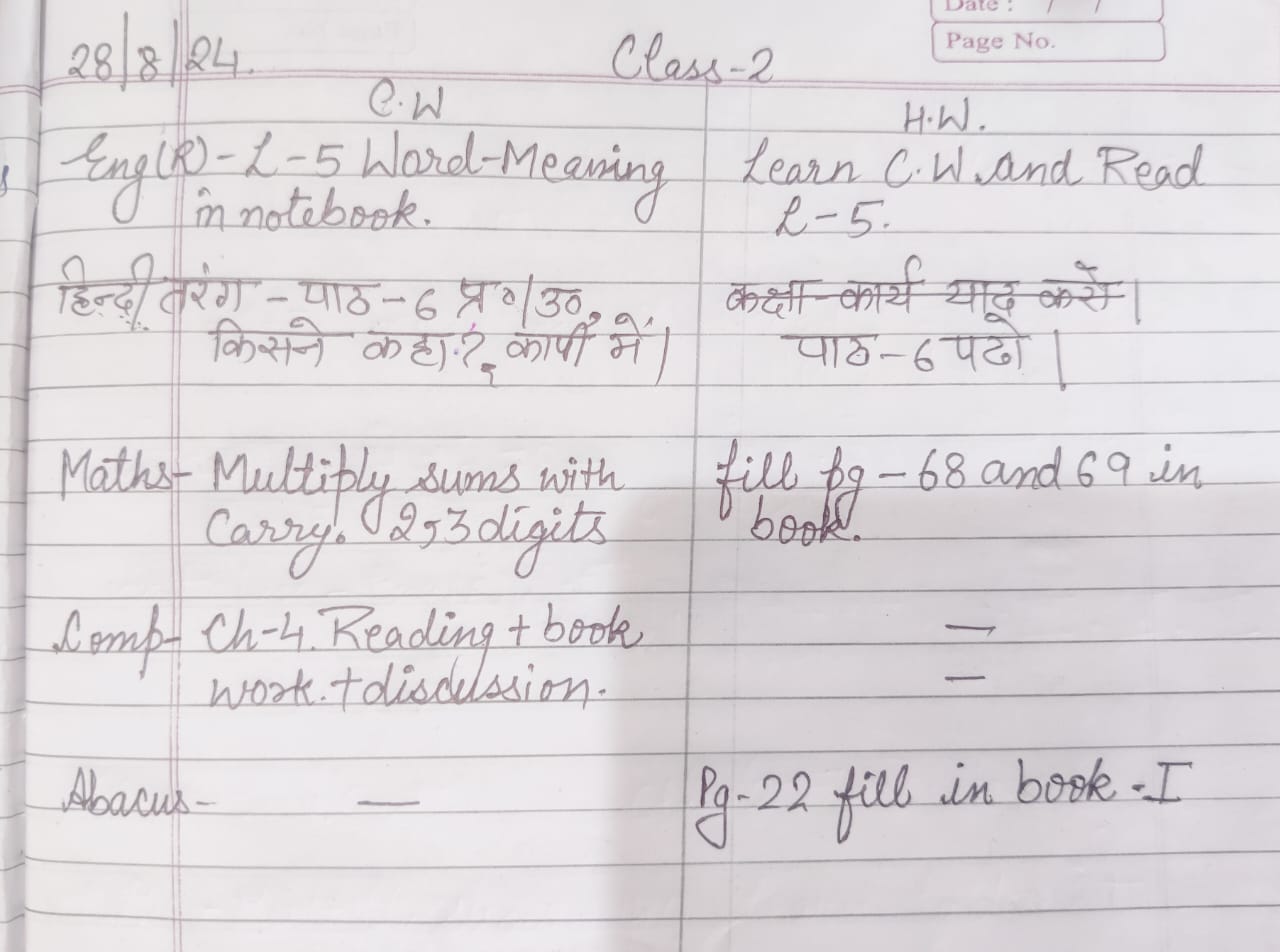 Date : / /
Page No.
28/8/24. Class-2
C.W
H.W.
Eng(R)-L-5 Word-Meaning
in notebook.
Learn C.W. and Read
L-5.
हिन्दी तरंग - पाठ - 6 प्र०/उ०,
किसने कहा?, कापी में।
कक्षा-कार्य याद करो।
पाठ-6 पढो।
Maths- Multiply sums with
Carry. 2,3 digits
fill pg - 68 and 69 in
book.
Comp- Ch-4. Reading + book
work. + discussion.
—
—
Abacus- —
Pg-22 fill in book-I